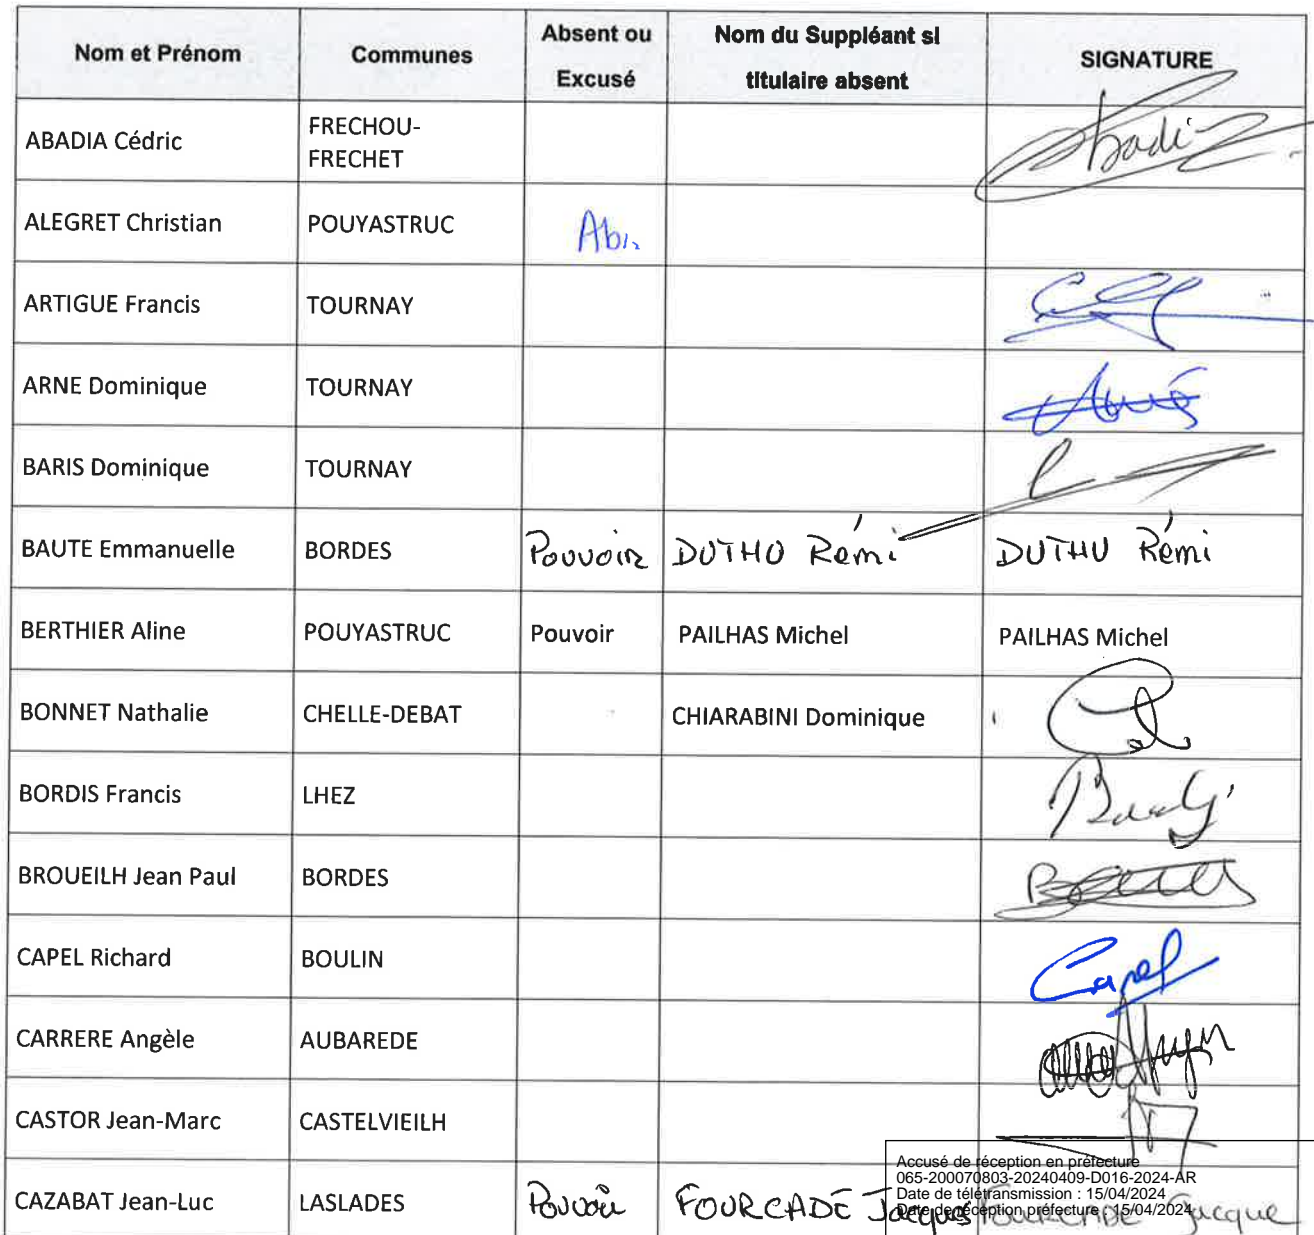 Nom et Prénom Communes Absent ou Excusé Nom du Suppléant si titulaire absent SIGNATURE
ABADIA Cédric FRECHOU-FRECHET
ALEGRET Christian POUYASTRUC Abs.
ARTIGUE Francis TOURNAY
ARNE Dominique TOURNAY
BARIS Dominique TOURNAY
BAUTE Emmanuelle BORDES Pouvoir DUTHU Rémi DUTHU Rémi
BERTHIER Aline POUYASTRUC Pouvoir PAILHAS Michel PAILHAS Michel
BONNET Nathalie CHELLE-DEBAT CHIARABINI Dominique
BORDIS Francis LHEZ
BROUEILH Jean Paul BORDES
CAPEL Richard BOULIN Capel
CARRERE Angèle AUBAREDE
CASTOR Jean-Marc CASTELVIEILH
CAZABAT Jean-Luc LASLADES Pouvoir FOURCADE Jacques FOURCADE Jacque
Accusé de réception en préfecture
065-200070803-20240409-D016-2024-AR
Date de télétransmission : 15/04/2024
Date de réception préfecture : 15/04/2024